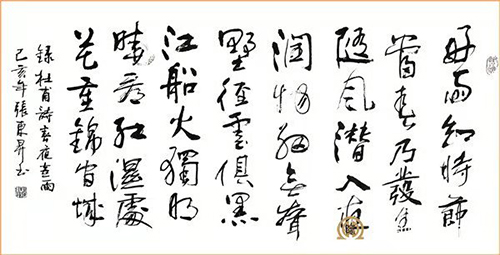 好雨知時節
當春乃發生
隨風潛入夜
潤物細無聲
野徑雲俱黑
江船火獨明
曉看紅濕處
花重錦官城
錄杜甫詩春夜喜雨
己亥年張東昇書